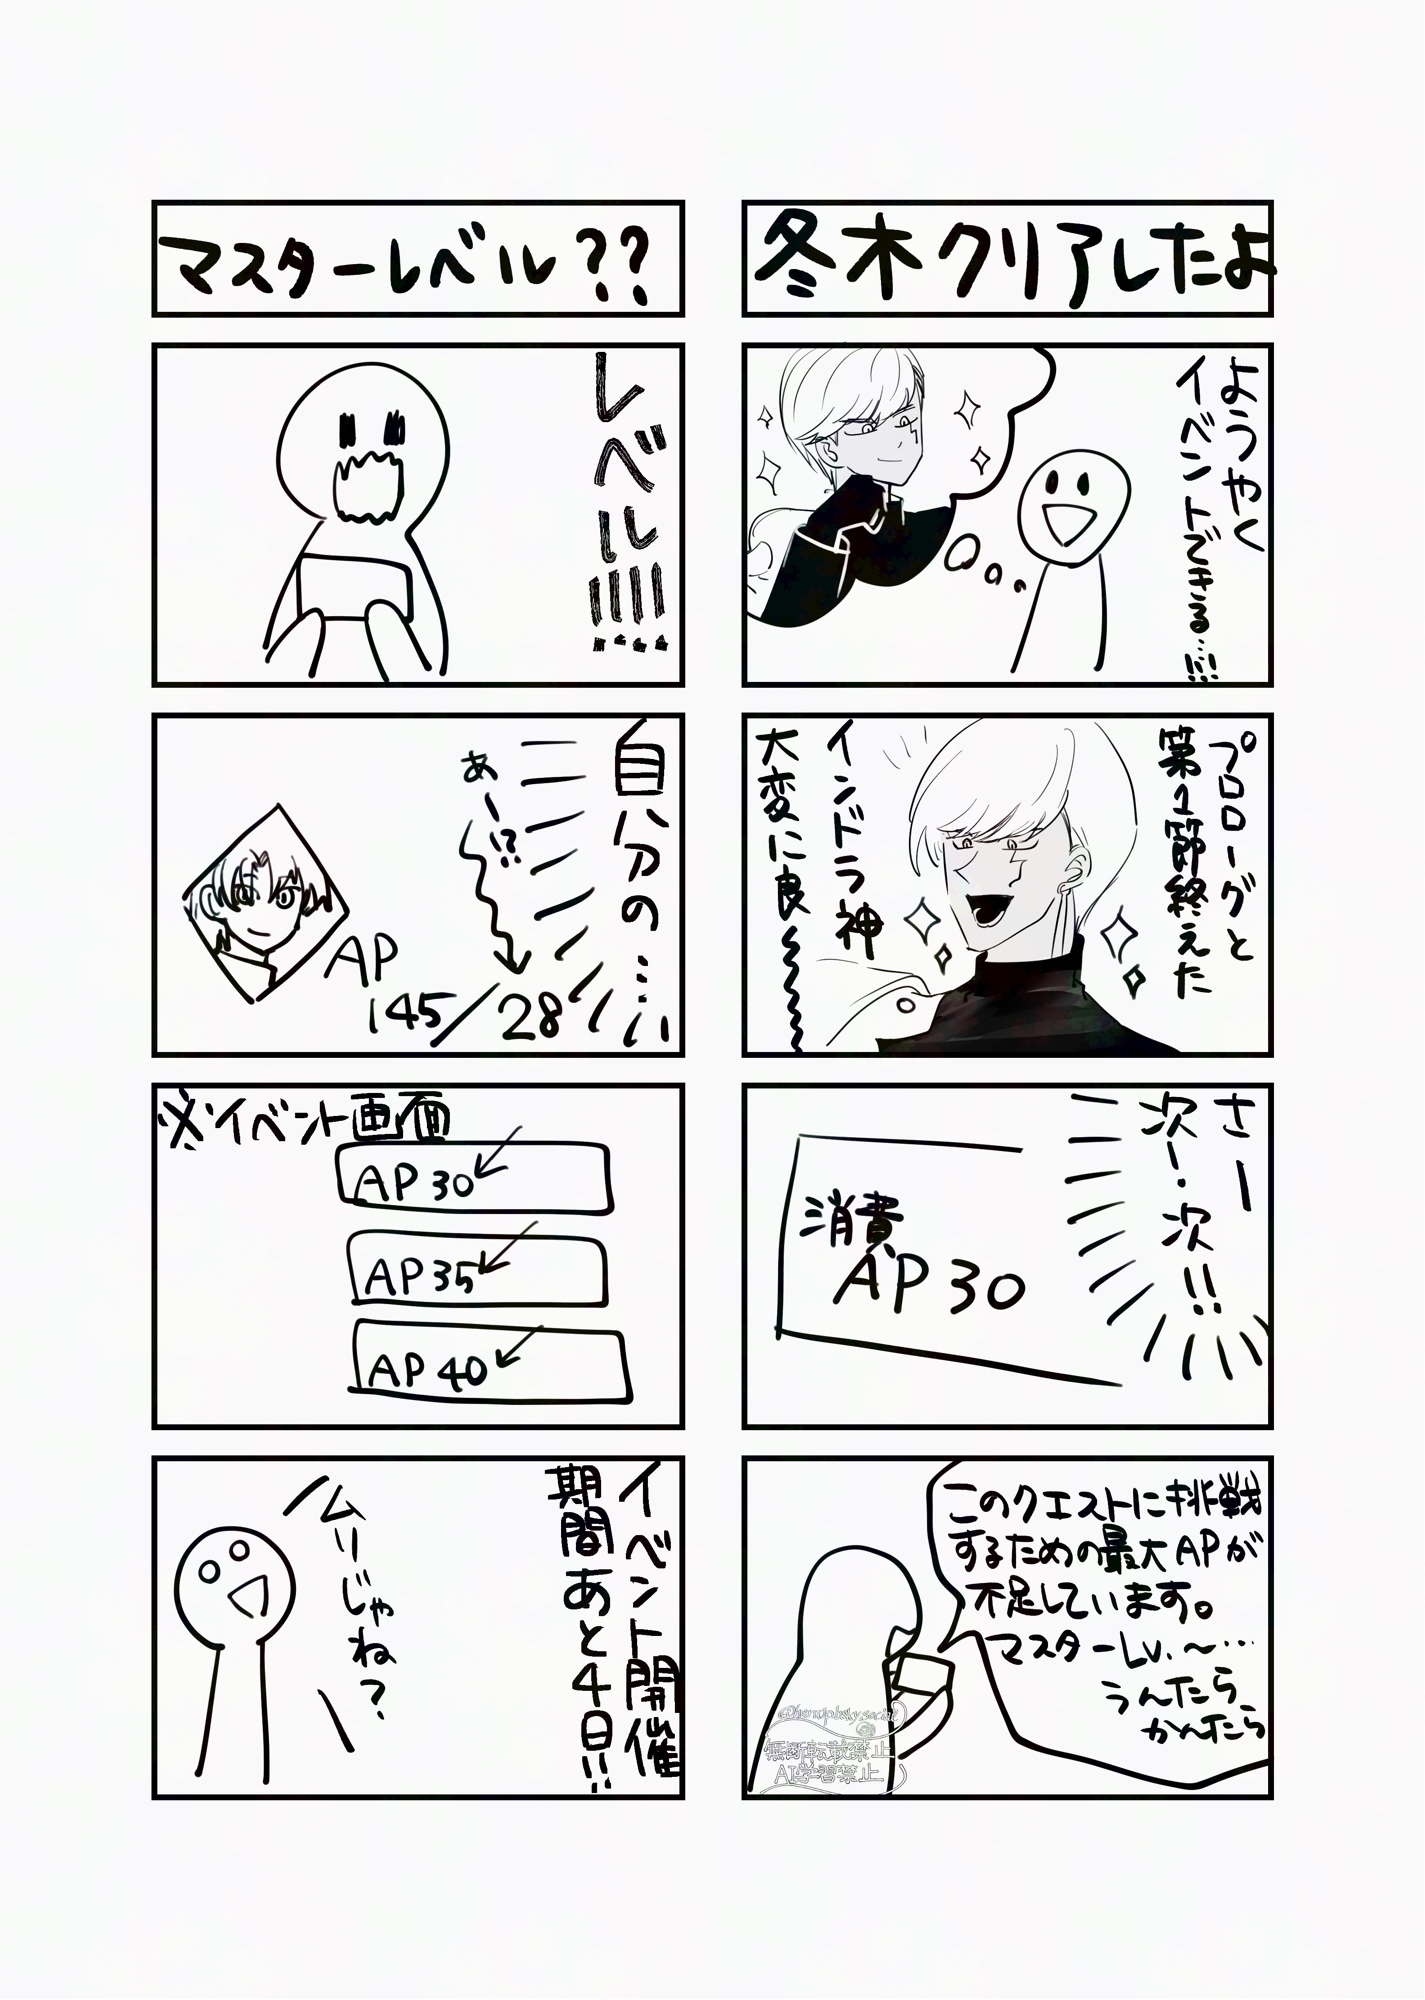 冬木クリアしたよ
ようやく
イベントできる…!!!
プロローグと
第1節終えた
インドラ神
大変に良
さー
次ー・次!!
消費
AP 30
このクエストに挑戦
するための最大APが
不足しています。
マスターLv.〜…
うんたら
かんたら
@harujpbsky.social
無断転載禁止
AI学習禁止
マスターレベル??
レベル!!!!
自分の……
あー!?
AP
145/28
※イベント画面
AP 30
AP 35
AP 40
イベント開催
期間あと4日!!
ムリじゃね?